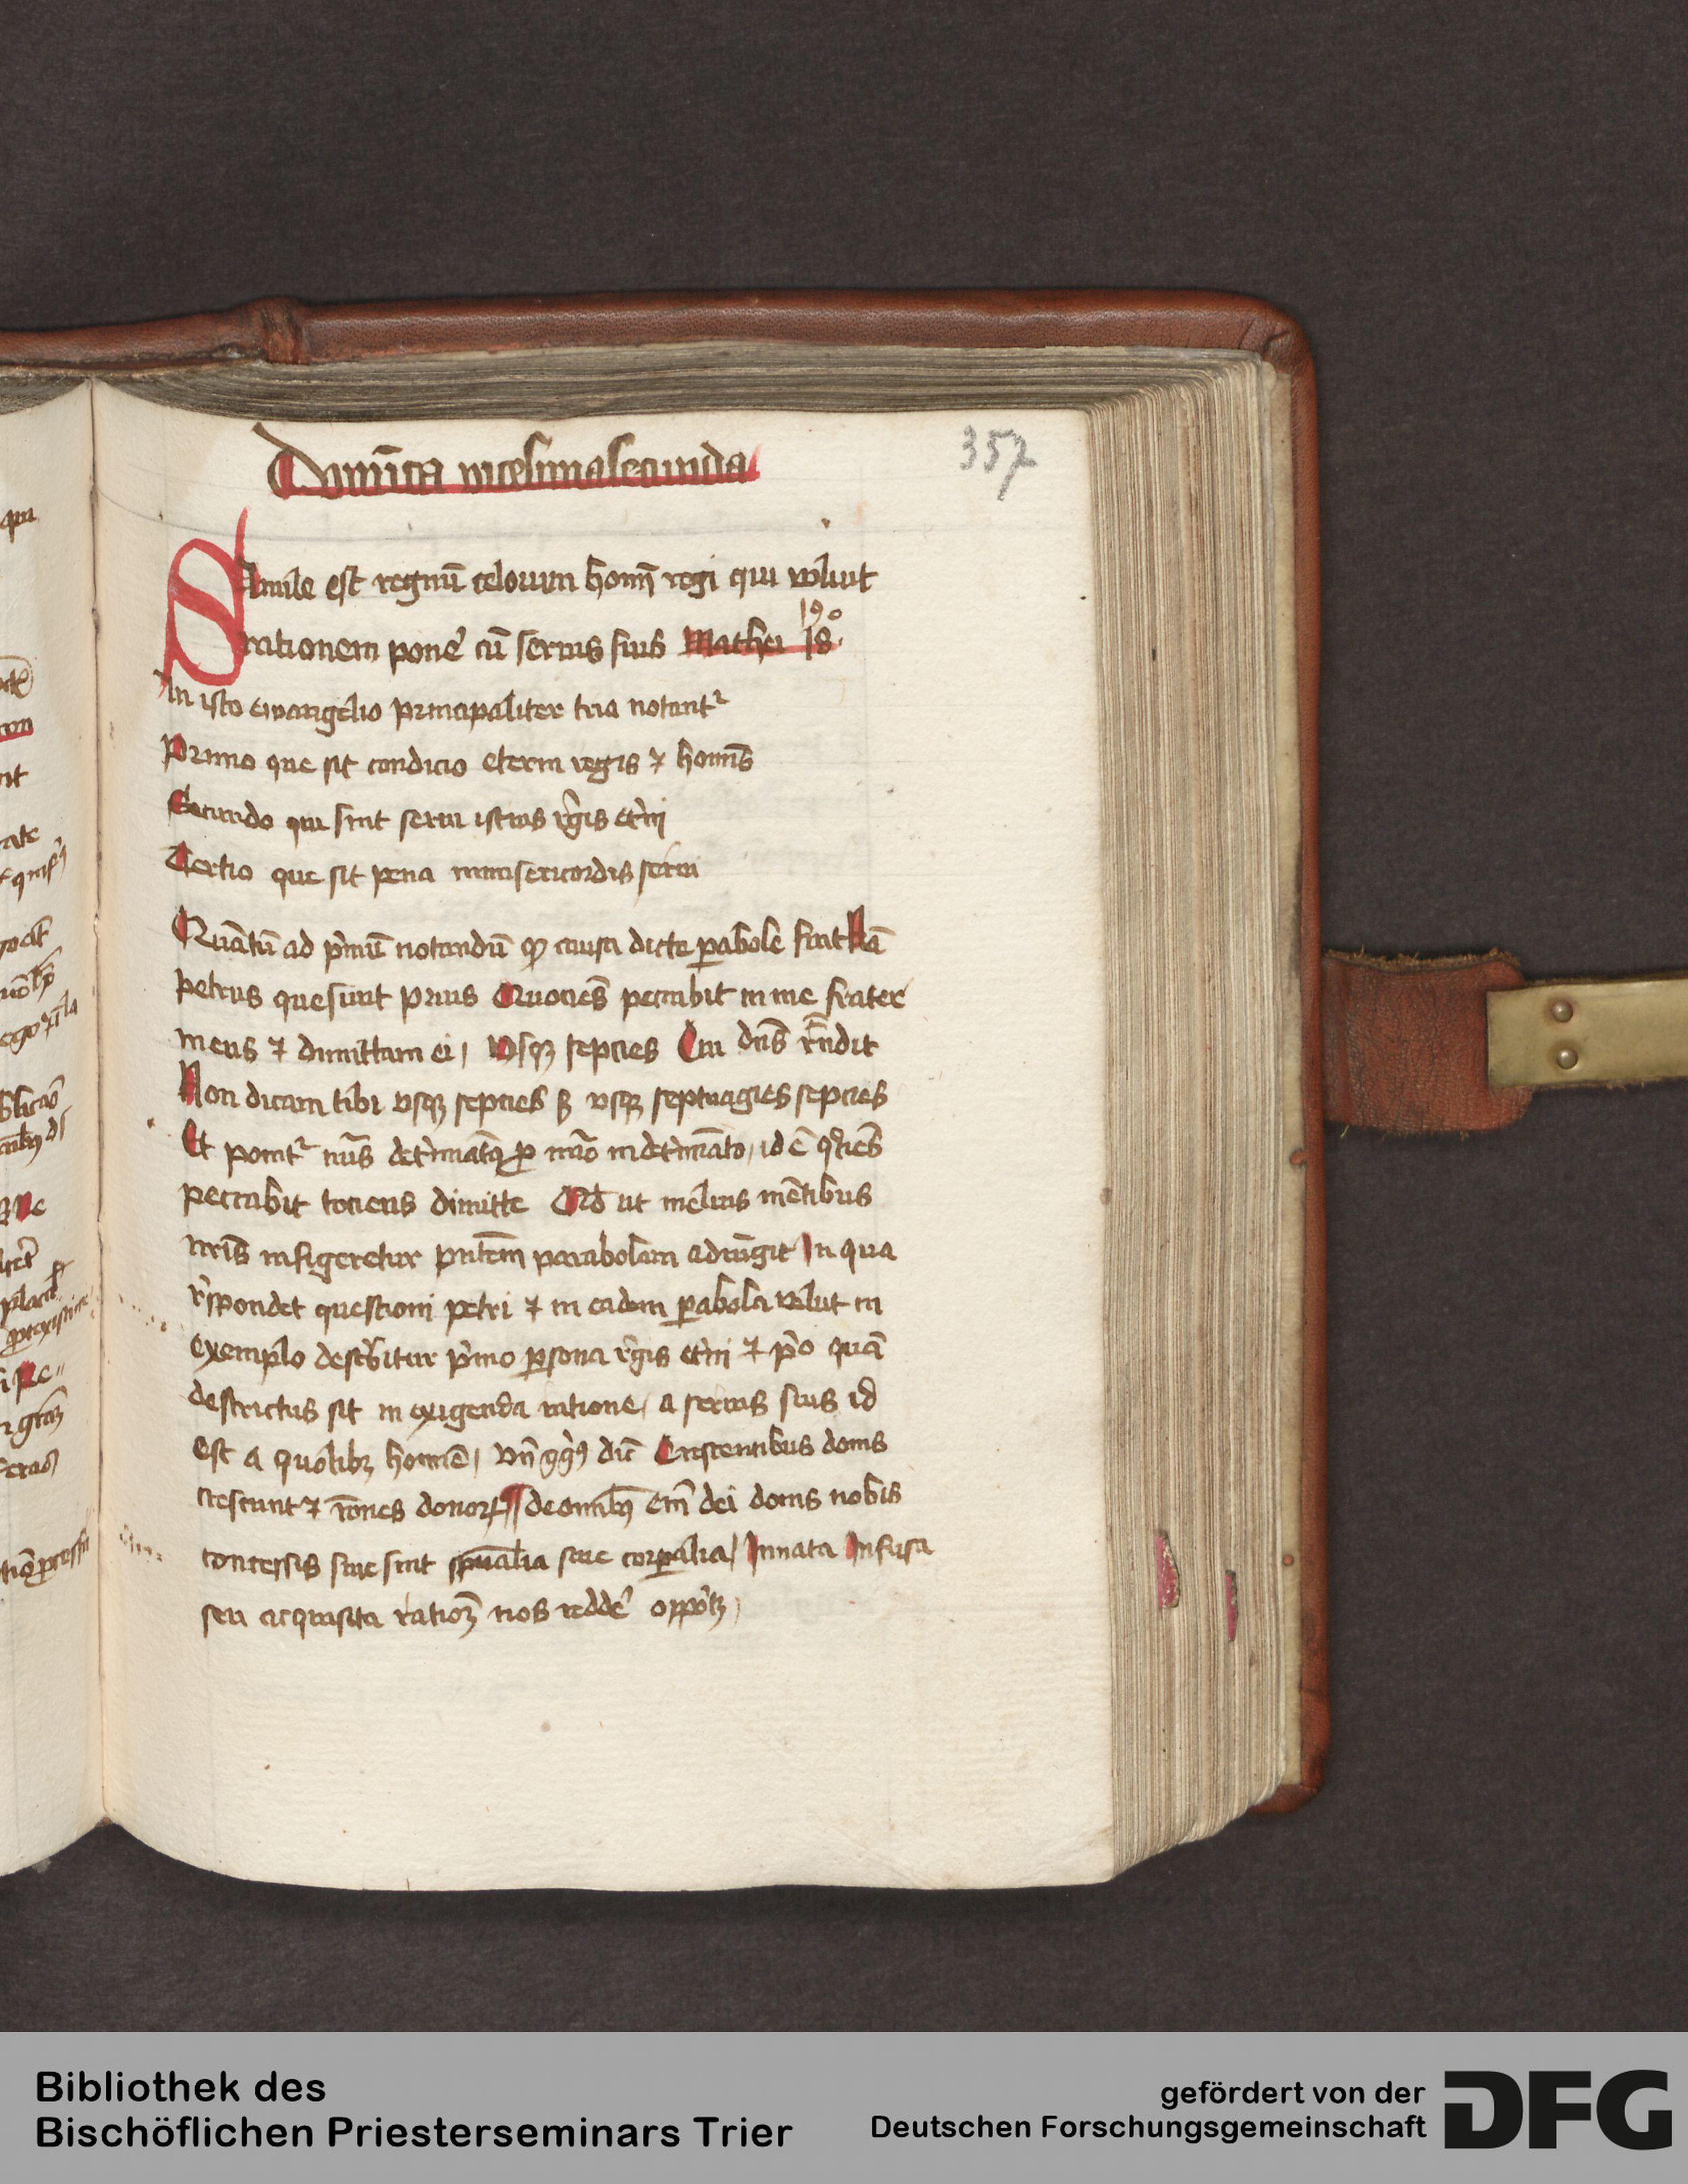 357
Domīca vicesimasecunda
Simile est regnū celorum homī regi qui voluit
rationem pone᷑ cū seruis suis Mathei 18
19º
In isto ewangelio principaliter tria notant᷑
Primo que sit condicio eterni regis ⁊ homīs
Secundo qui sint serui istius r̄gis et̄ni
Tertio que sit pena inmisericordis serui
Quātū ad p̄mū notandū ꝙ causa dicte ꝑabole fuit
Petrus quesiuit prius Quociēs peccabit in me frater
meus ⁊ dimittam ei / Vsqꝫ sepcies Cui dn̄s r̄ndit
Non dicam tibi vsqꝫ sepcies sꝫ vsqꝫ septuagies sepcies
Et ponit᷑ nūs det̄minatꝰ ꝓ nūo indet̄miāto, id ē qͦciēs
peccabit tociens dimitte Qd̄ ut melius mētibus
nr̄is infigeretur pn̄tem parabolam adiūgit In qua
r̄spondet questioni petri ⁊ in eadem ꝑabola velut in
exemplo descͥbitur p̄mo ꝑsona r̄gis et̄ni ⁊ pͦ quā
destrictus sit in exigenda ratione / a seruis suis id
est a quolibꝫ homīe / Vn̄ gg̊ꝰ dic̄ Crescentibus donis
crescunt ⁊ rōnes donoꝝ ¶ de omnibꝰ em̄ dei donis nobis
concessis siue sint spūalia siue corꝑalia / Innata Infusa
seu acquisita rationꝫ nos redde᷑ oppͦtꝫ /
Bibliothek des
Bischöflichen Priesterseminars Trier
gefördert von der
Deutschen Forschungsgemeinschaft
DFG